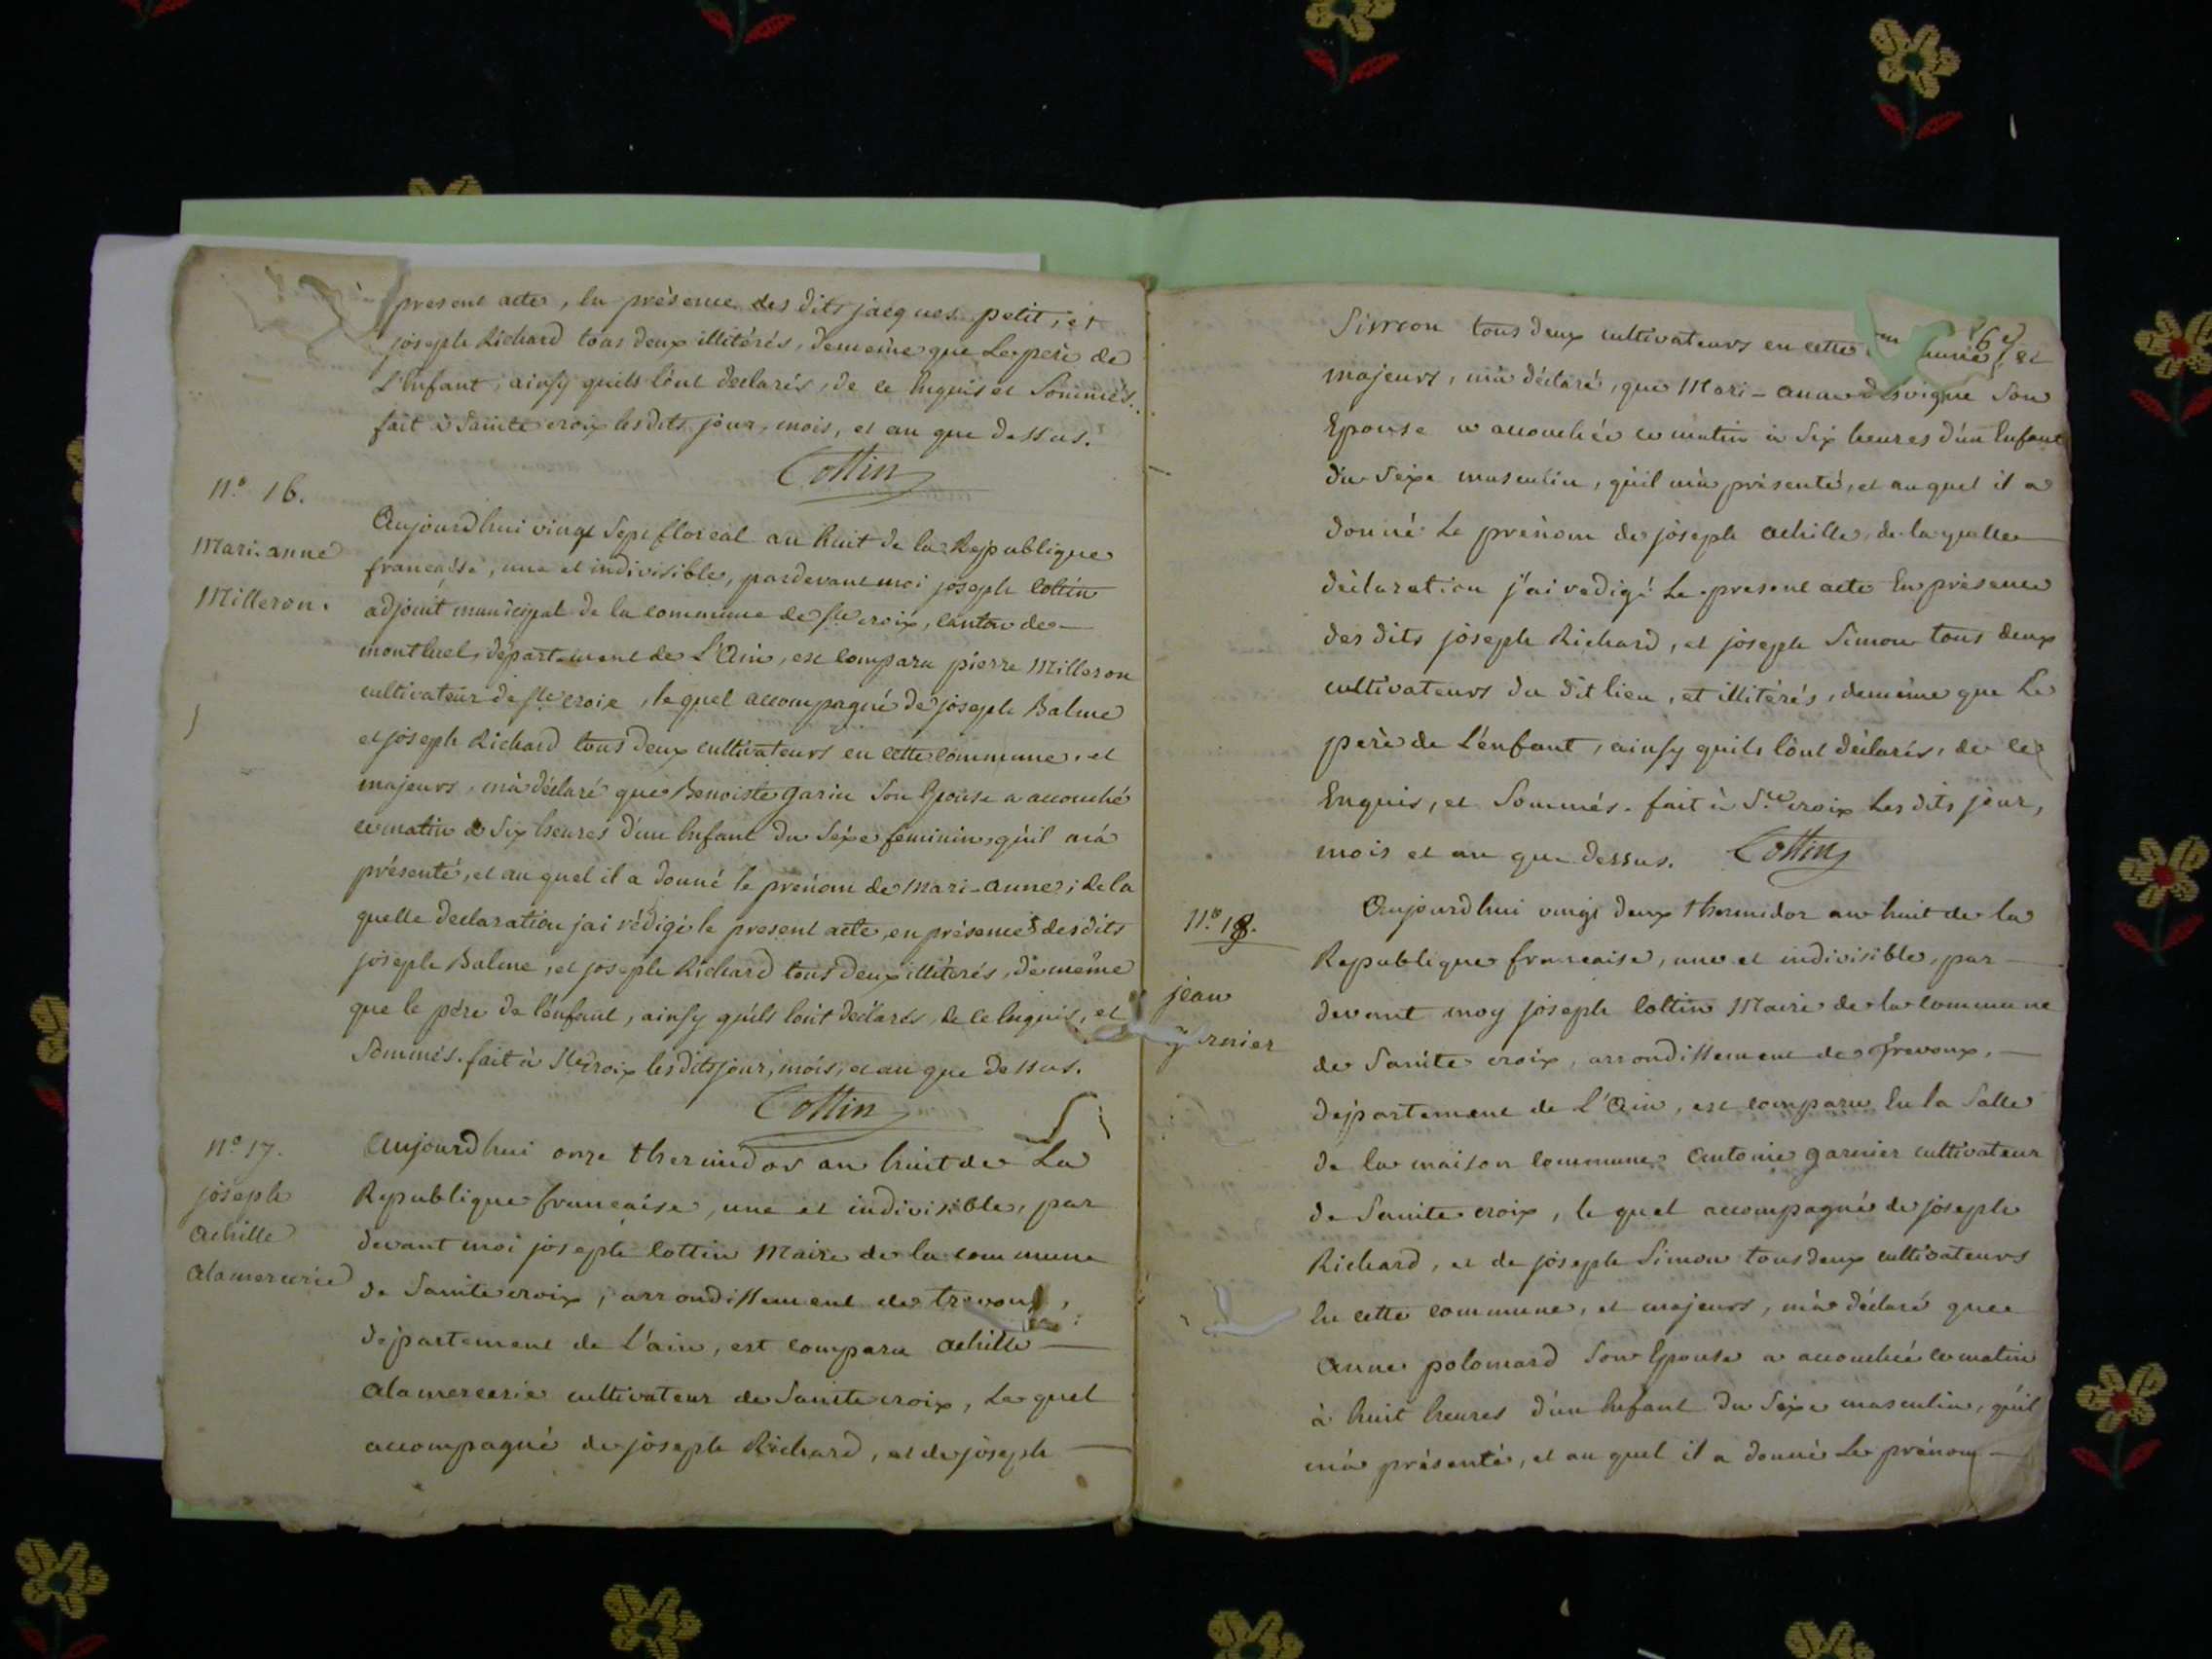 present acte, En présence des dits jacques petit, et
joseph Richard tous deux illitérés, demême que Le pere de
L'Enfant, ainsy quils l'ont declarés, de ce Enquis et Sommés.
fait à Sainte croix les dits jour, mois, et an que dessus.
Cottin
N.° 16.
Mari-anne
Milleron.
Aujourdhui vingt Sept floréal an huit de la Republique
francaisse, une et indivisible, pardevant moi joseph Cottin
adjoint municipal de la commune de Ste croix, canton de
montluel, département de L'Ain, est comparu pierre Milleron
cultivateur de Ste croix, le quel accompagné de joseph Balme
et joseph Richard tous deux cultivateurs en cette commune, et
majeurs, m'à déclaré que Benoiste garin Son Epouse a accouché
ce matin à Six heures d'un Enfant du Séxe féminin, qu'il m'à
présenté, et au quel il a donné le prénom de Mari-anne; de la
quelle declaration j'ai rédigé le present acte, en présence des dits
joseph Balme, et joseph Richard tous deux illitérés, de même
que le pére de l'énfant, ainsy qu'ils l'ont déclarés, de ce Enquis, et
Sommés. fait à Ste croix les dits jour, mois, et an que dessus.
Cottin
N.° 17.
joseph
achille
alamercerie
Aujourdhui onze thermidor an huit de La
Republique francaise, une et indivisible, par
devant moi joseph Cottin Maire de la commune
de Sainte croix, arrondissement de trevoux,
département de L'ain, est comparu achille
alamercerie cultivateur de Sainte croix, Le quel
accompagné de joseph Richard, et de joseph
Simon tous deux cultivateurs en cette et
majeurs, m'a déclaré, que Mari-anne Desvigne Son
Epouse a accouchée ce matin à Six heures d'un Enfant
du Sexe masculin, qu'il m'à présenté, et au quel il a
donné Le prénom de joseph achille, de la quelle
déclaration j'ai redigé Le present acte En présence
des dits joseph Richard, et joseph Simon tous deux
cultivateurs du dit lieu, et illitérés, demême que Le
pere de L'énfant, ainsy quils l'ont déclarés, de ce
Enquis, et Sommés. fait à Ste croix Les dits jour,
mois et an que dessus. Cottin
N.° 18.
jean
garnier
Aujourdhui vingt deux thermidor an huit de la
Republique francaise, une et indivisible, par
devant moy joseph Cottin Maire de la commune
de Sainte croix, arrondissement de Trevoux,
département de L'Ain, est comparu En la Salle
de la maison commune antoine garnier cultivateur
de Sainte croix, le quel accompagné de joseph
Richard, et de joseph Simon tous deux cultivateurs
En cette commune, et majeurs, m'à déclaré que
anne polomard Son Epouse a accouchée ce matin
à huit heures d'un Enfant du Séxe masculin, qu'il
m'à présenté, et au quel il a donné Le prénom